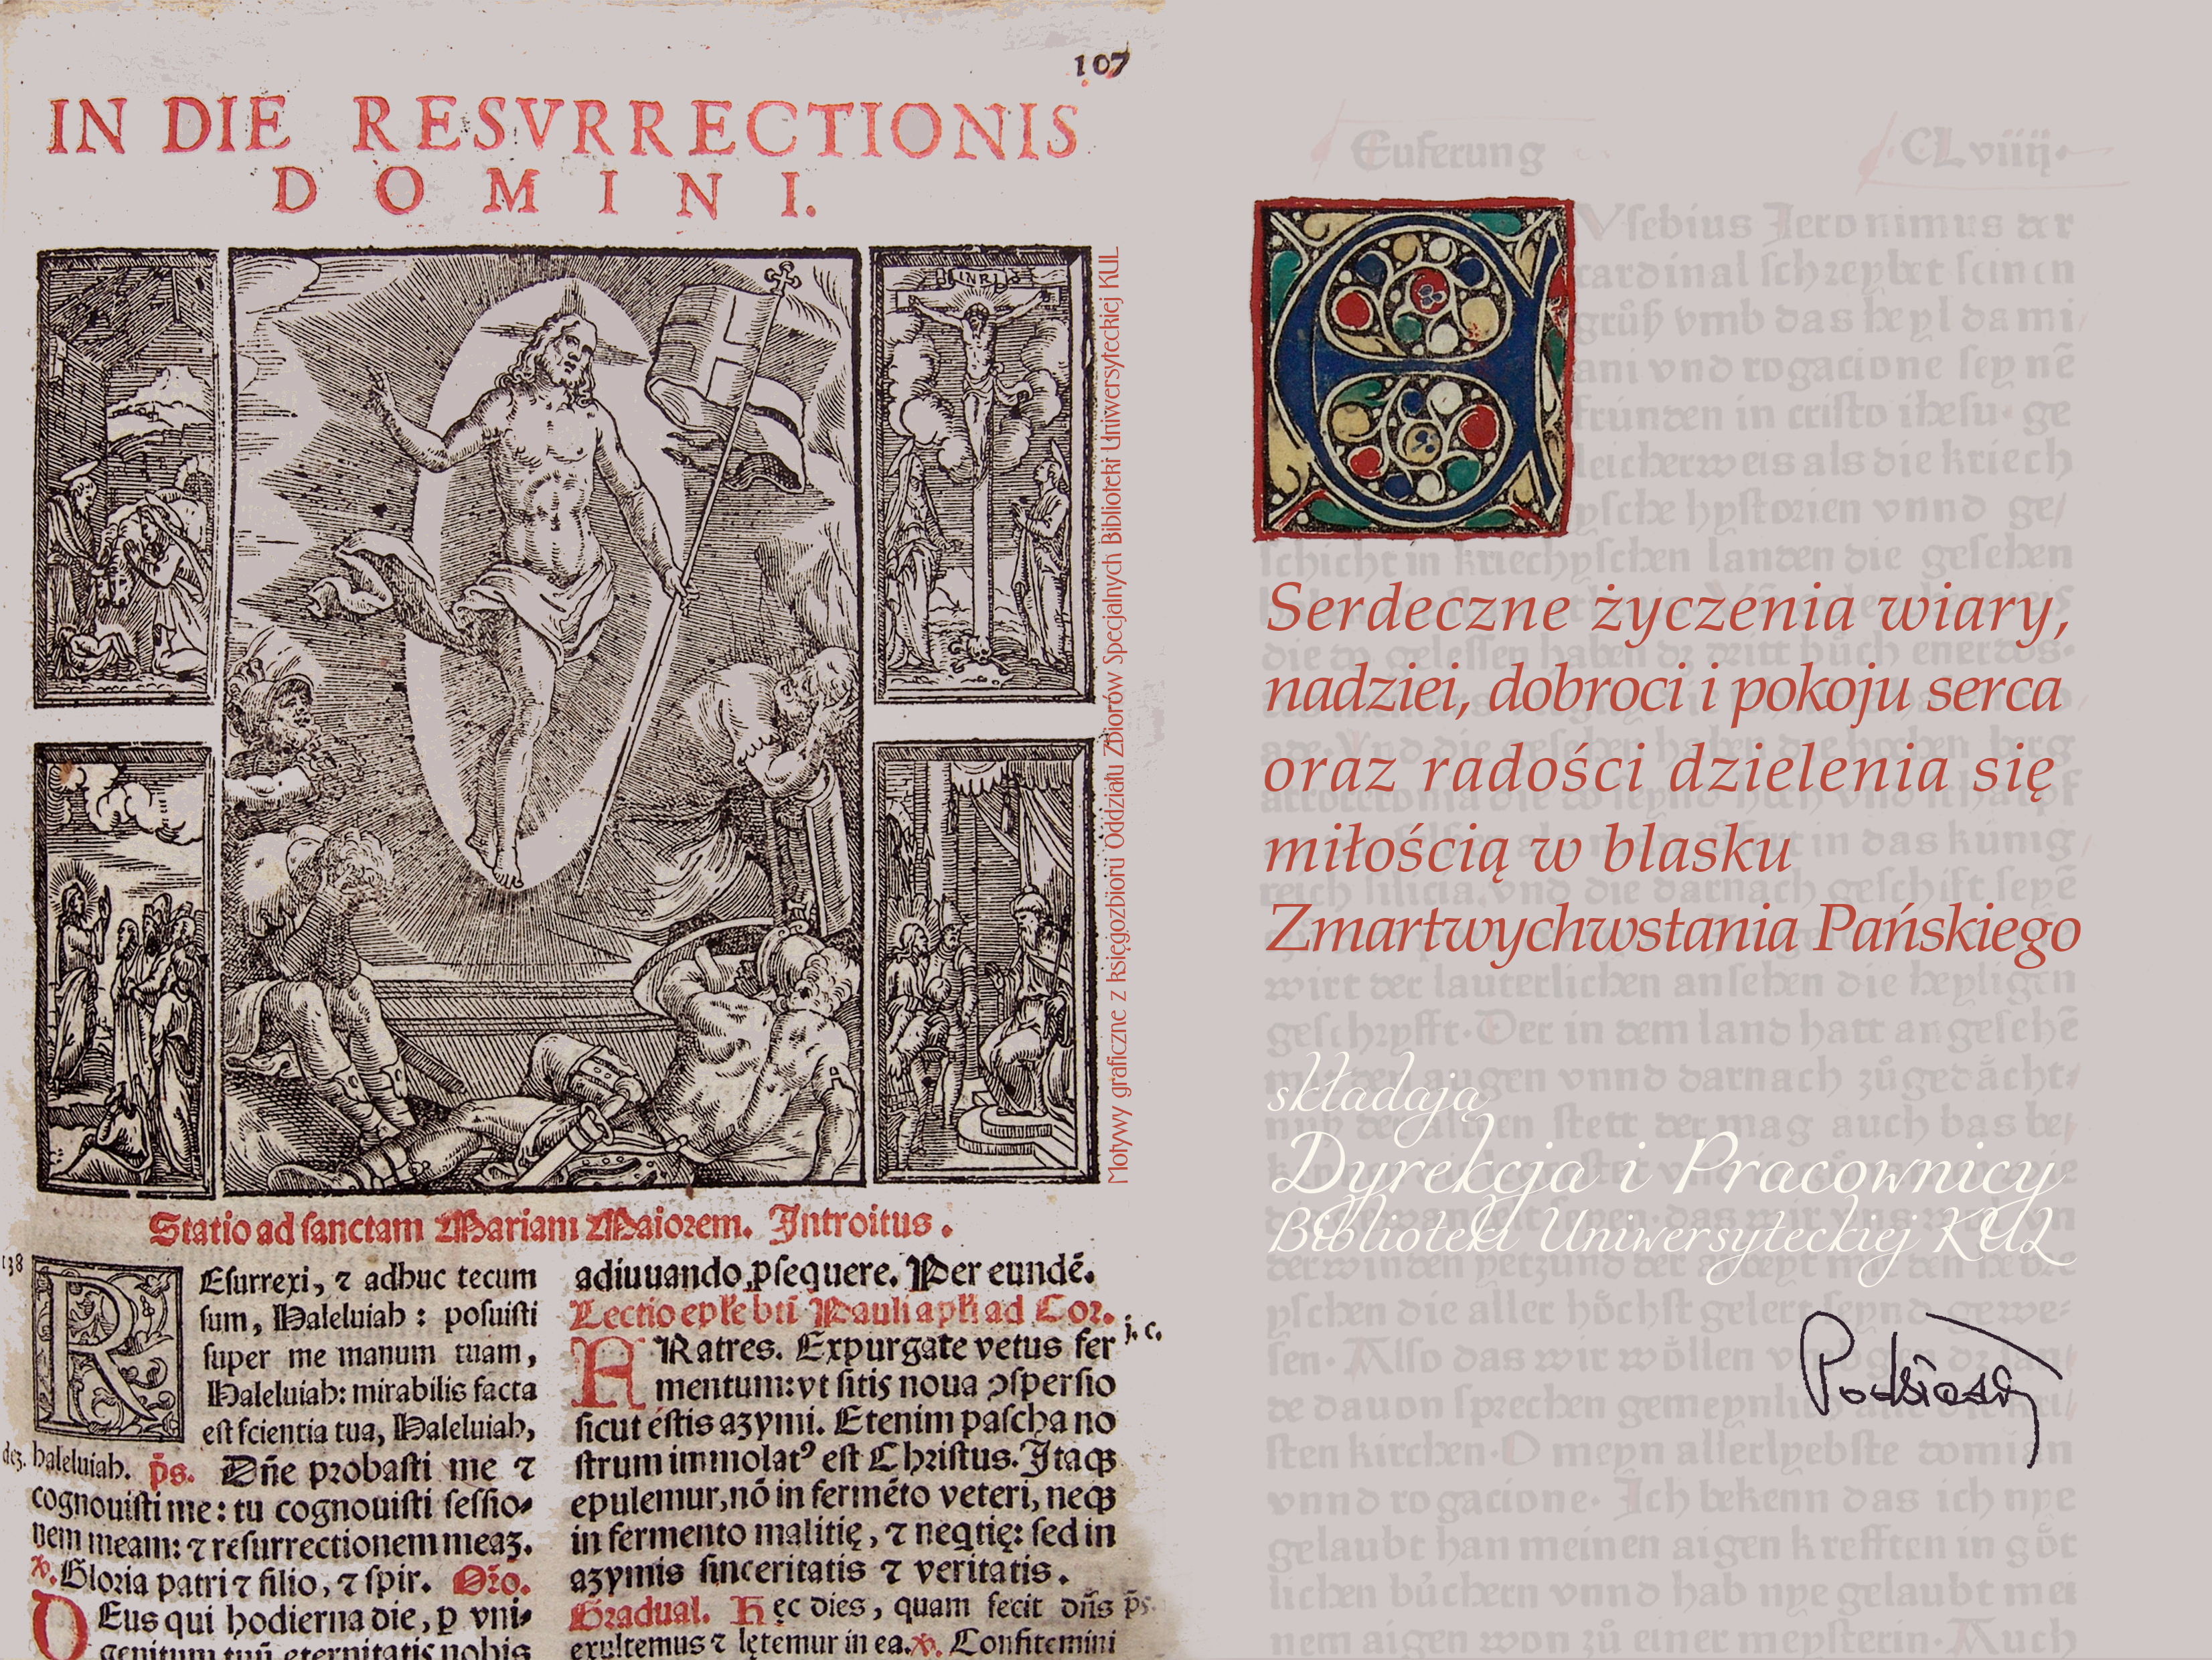 107
IN DIE RESVRRECTIONIS
DOMINI.
INRI
Motywy graficzne z księgozbioru Oddziału Zbiorów Specjalnych Biblioteki Uniwersyteckiej KUL
Statio ad sanctam Mariam Maiorem. Introitus.
138
REsurrexi, ⁊ adhuc tecum
sum, Haleluiah : posuisti
super me manum tuam,
Haleluiah: mirabilis facta
est scientia tua, Haleluiah,
haleluiah. p̄s. Dñe probasti me ⁊
cognouisti me: tu cognouisti sessio-
nem meam: ⁊ resurrectionem meaʒ.
℣. Gloria patri ⁊ filio, ⁊ spir. Oỉo.
DEus qui hodierna die, p vni-
genitum tuũ eternitatis nobis
adiuuando ꝓsequere. Per eundẽ.
Lectio epl̃e btĩ Pauli apl̃i ad Cor.
j. c.
FRatres. Expurgate vetus fer
mentum: vt sitis noua ꝯspersio
sicut estis azymi. Etenim pascha no
strum immolatꝰ est Christus. Itaqꝫ
epulemur, nõ in fermẽto veteri, neqꝫ
in fermento malitię, ⁊ neqtię: sed in
azymis sinceritatis ⁊ veritatis.
Gradual. Hęc dies, quam fecit dñs p̄s.
exultemus ⁊ lętemur in ea. ℣. Confitemini
Euferung CLviiij.
EVsebius Jeronimus der
cardinal schreybet seinen
grůß vmb das heyl dami
ani vnd rogacione seynē
frúnden in cristo ihesu. ge
leicherweis als die kriech
ysche hystorien vnnd ge/
schicht in kriechyschen landen die gesehen
Serdeczne życzenia wiary,
nadziei, dobroci i pokoju serca
oraz radości dzielenia się
miłością w blasku
Zmartwychwstania Pańskiego
wirt der lauterlichen ansehen die heyligen
geschrifft. Der in dem land hatt angesehē
składają
Dyrekcja i Pracownicy
Biblioteki Uniwersyteckiej KUL
yschen die aller höchst gelert seynd gewe-
sen. Also das wir wöllen
de dauon sprechen gemeynlich
sten kirchen. O meyn allerlyebste domian
vnnd rogacione. Ich bekenn das ich nye
gelaubt han meinen aigen krefften in göt
lichen bůchern vnnd hab nye gelaubt mei
nem aigen won zů einer meysterin. Auch